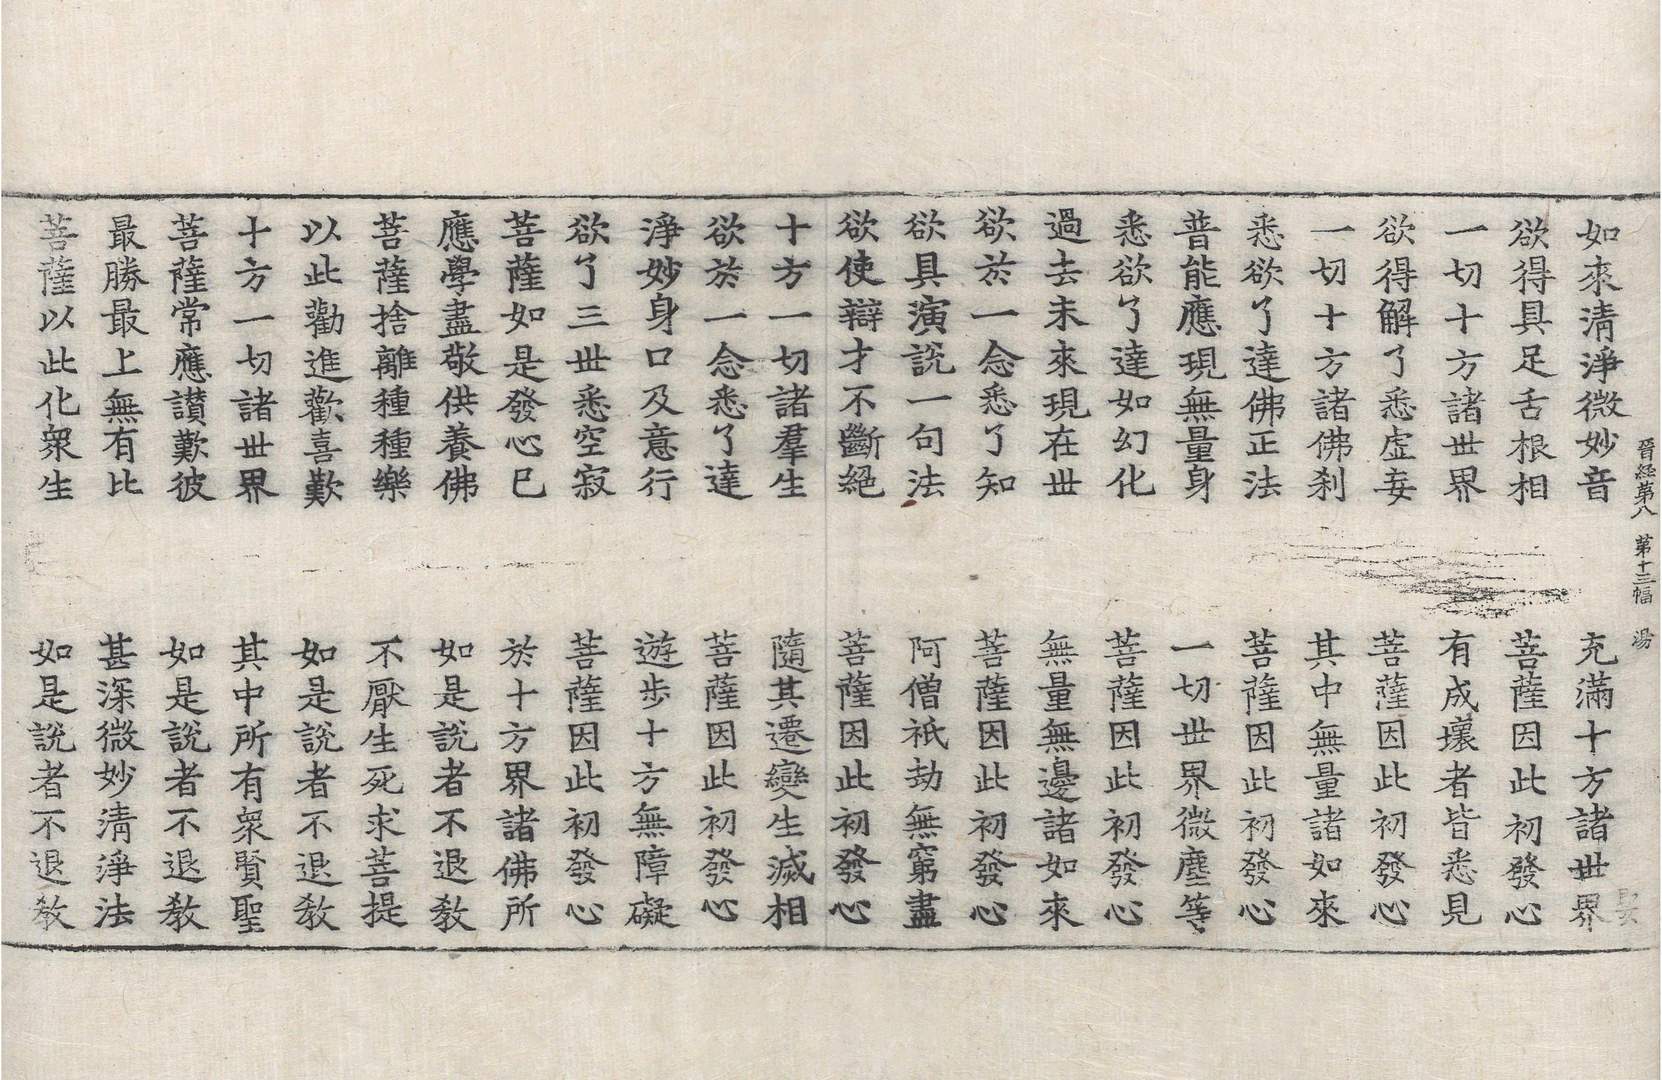 晉經第八 第十三幅 湯
如來清淨微妙音 充滿十方諸世界
欲得具足舌根相 菩薩因此初發心
一切十方諸世界 有成壞者皆悉見
欲得解了悉虛妄 菩薩因此初發心
一切十方諸佛刹 其中無量諸如來
悉欲了達佛正法 菩薩因此初發心
普能應現無量身 一切世界微塵等
悉欲了達如幻化 菩薩因此初發心
過去未來現在世 無量無邊諸如來
欲於一念悉了知 菩薩因此初發心
欲具演說一句法 阿僧祇劫無窮盡
欲使辯才不斷絕 菩薩因此初發心
十方一切諸羣生 隨其遷變生滅相
欲於一念悉了達 菩薩因此初發心
淨妙身口及意行 遊步十方無障礙
欲了三世悉空寂 菩薩因此初發心
菩薩如是發心已 於十方界諸佛所
應學盡敬供養佛 如是說者不退教
菩薩捨離種種樂 不厭生死求菩提
以此勸進歡喜歎 如是說者不退教
十方一切諸世界 其中所有衆賢聖
菩薩常應讃歎彼 如是說者不退教
最勝最上無有比 甚深微妙清淨法
菩薩以此化衆生 如是說者不退教